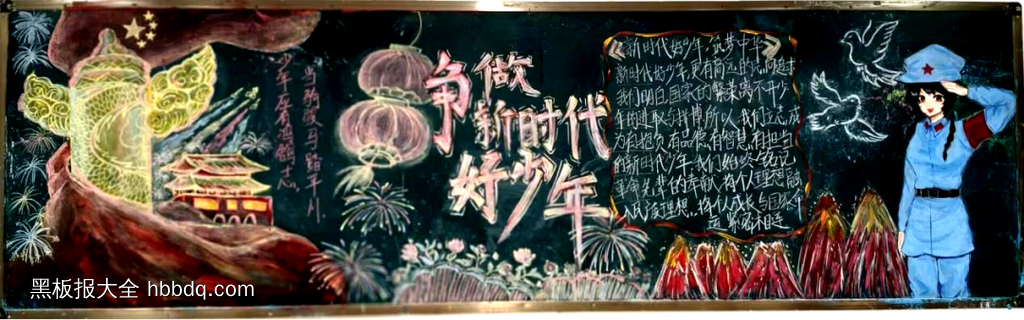 少年应有鸿鹄志,
当骑骏马踏平川
争做
新时代
好少年
《新时代好少年,筑梦中华》
新时代好少年,更有高远的
我们明白,国家的繁荣离不开少
年的进取与拼搏所以,我们立志成
为有抱负,有品德,有智慧,有担当
的新时代少年,我们始终铭记
革命先辈的奉献,将个人理想融
入 理想,将个人成长与国家
紧密相连
黑板报大全 hbbdq.com